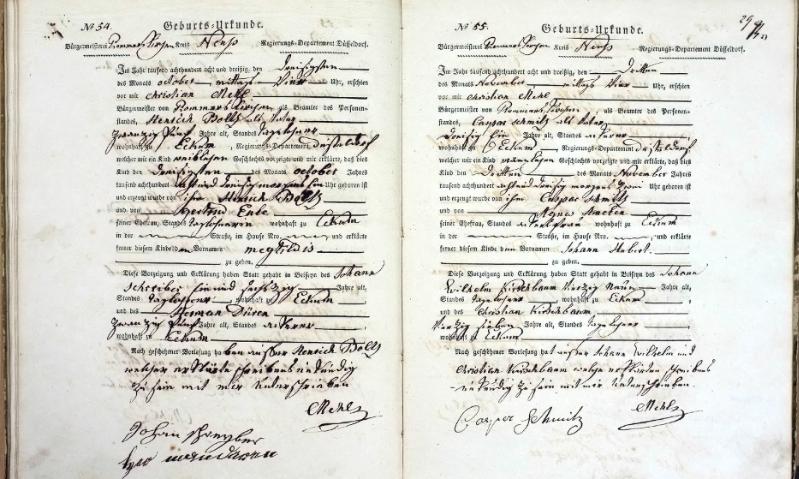 № 54. Geburts-Urkunde.
Bürgermeisterei Rommerskirchen Kreis Neuß Regierungs-Departement Düsseldorf.
Im Jahr tausend achthundert acht und dreißig, den dreisigsten
des Monats october mittags Vier Uhr, erschien
vor mir Christian Mehl
Bürgermeister von Rommerskirchen als Beamter des Personen-
standes, Henrick Boltz als Vater
zwanzig fünf Jahre alt, Standes taglohner
wohnhaft zu Eckum, Regierungs-Departement Düsseldorf
welcher mir ein Kind weiblichen Geschlechts vorzeigte und mir erklärte, daß dies
Kind den dreisigsten des Monats october Jahres
tausend achthundert acht und dreisig morgens Uhr geboren ist
und erzeugt wurde von ihm Henrick Boltz
und von
seiner Ehefrau, Standes taglohnerin wohnhaft zu Eckum
in der Straße, im Hause Nro. und erklärte
ferner diesem Kinde Vornamen
zu geben.
Diese Vorzeigung und Erklärung haben Statt gehabt in Beiseyn des Johann
Schreiber ein und sechszig Jahre alt,
Standes taglohner wohnhaft zu Eckum
und des Herman Düren
zwanzig fünf Jahre alt, Standes Ackerer
wohnhaft zu Eckum
Nach geschehener Vorlesung haben außer Henrick Boltz
welcher erklärte schreibens unkundig
zu sein mit mir unterschrieben
Mehl
Johan schreyber
№ 55. Geburts-Urkunde.
Bürgermeisterei Rommerskirchen Kreis Neuß Regierungs-Departement Düsseldorf.
Im Jahr tausend achthundert acht und dreißig, den Dritten
des Monats November mittags Vier Uhr, erschien
vor mir Christian Mehl
Bürgermeister von Rommerskirchen als Beamter des Personen-
standes, Caspar Schmitz als Vater
dreisig ein Jahre alt, Standes Ackerer
wohnhaft zu Eckum, Regierungs-Departement Düsseldorf
welcher mir ein Kind männlichen Geschlechts vorzeigte und mir erklärte, daß dies
Kind den Dritten des Monats November Jahres
tausend achthundert acht und dreisig morgens Uhr geboren ist
und erzeugt wurde von ihm Caspar Schmitz
und von Agnes
seiner Ehefrau, Standes wohnhaft zu Eckum
in der Straße, im Hause Nro. und erklärte
ferner diesem Kinde den Vornamen Johann Hubert
zu geben.
Diese Vorzeigung und Erklärung haben Statt gehabt in Beiseyn des Johann
Wilhelm Kirschbaum Vierzig Neun Jahre alt,
Standes taglohner wohnhaft zu Eckum
und des Christian Kirschbaum
Vierzig sieben Jahre alt, Standes taglohner
wohnhaft zu Eckum
Nach geschehener Vorlesung hat außer Johann Wilhelm und
Christian Kirschbaum welche erklärten schreibens
unkundig zu sein mit mir unterschrieben.
Mehl
Casper Schmitz